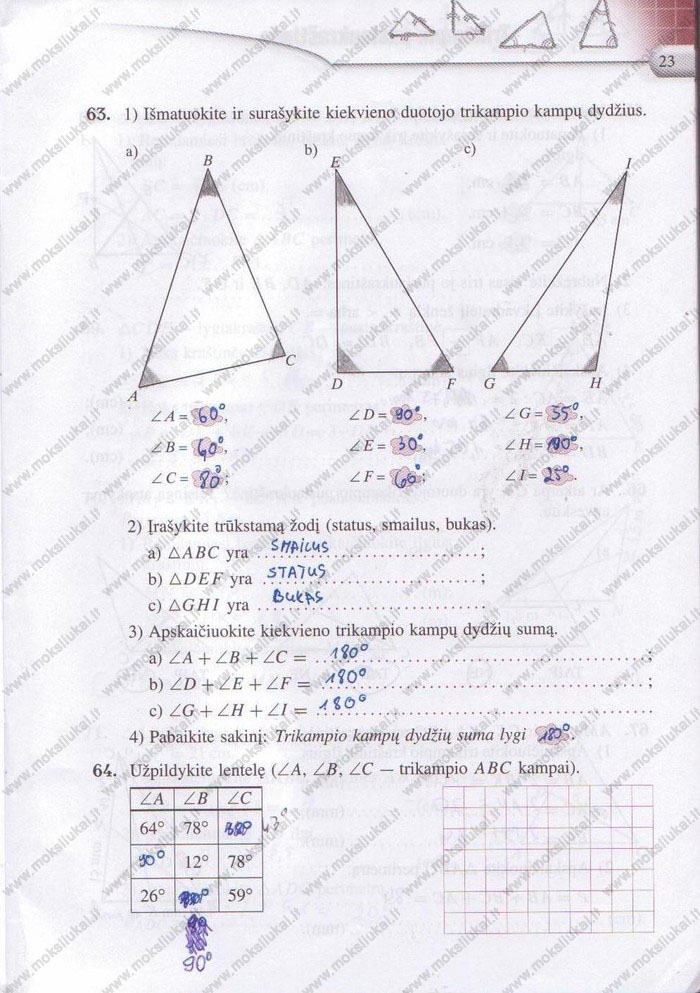 23
63. 1) Išmatuokite ir surašykite kiekvieno duotojo trikampio kampų dydžius.
a) b) c)
B E I
C
A D F G H
∠A = 60°, ∠D = 90°, ∠G = 55°,
∠B = 40°, ∠E = 30°, ∠H = 100°,
∠C = 80°; ∠F = 60°; ∠I = 25°.
2) Įrašykite trūkstamą žodį (status, smailus, bukas).
a) △ABC yra SMAILUS;
b) △DEF yra STATUS;
c) △GHI yra BUKAS
3) Apskaičiuokite kiekvieno trikampio kampų dydžių sumą.
a) ∠A + ∠B + ∠C = 180°;
b) ∠D + ∠E + ∠F = 180°;
c) ∠G + ∠H + ∠I = 180°
4) Pabaikite sakinį: Trikampio kampų dydžių suma lygi 180°.
64. Užpildykite lentelę (∠A, ∠B, ∠C — trikampio ABC kampai).
∠A ∠B ∠C
64° 78°
90° 12° 78°
26° 59°
90°
www.moksliukai.lt